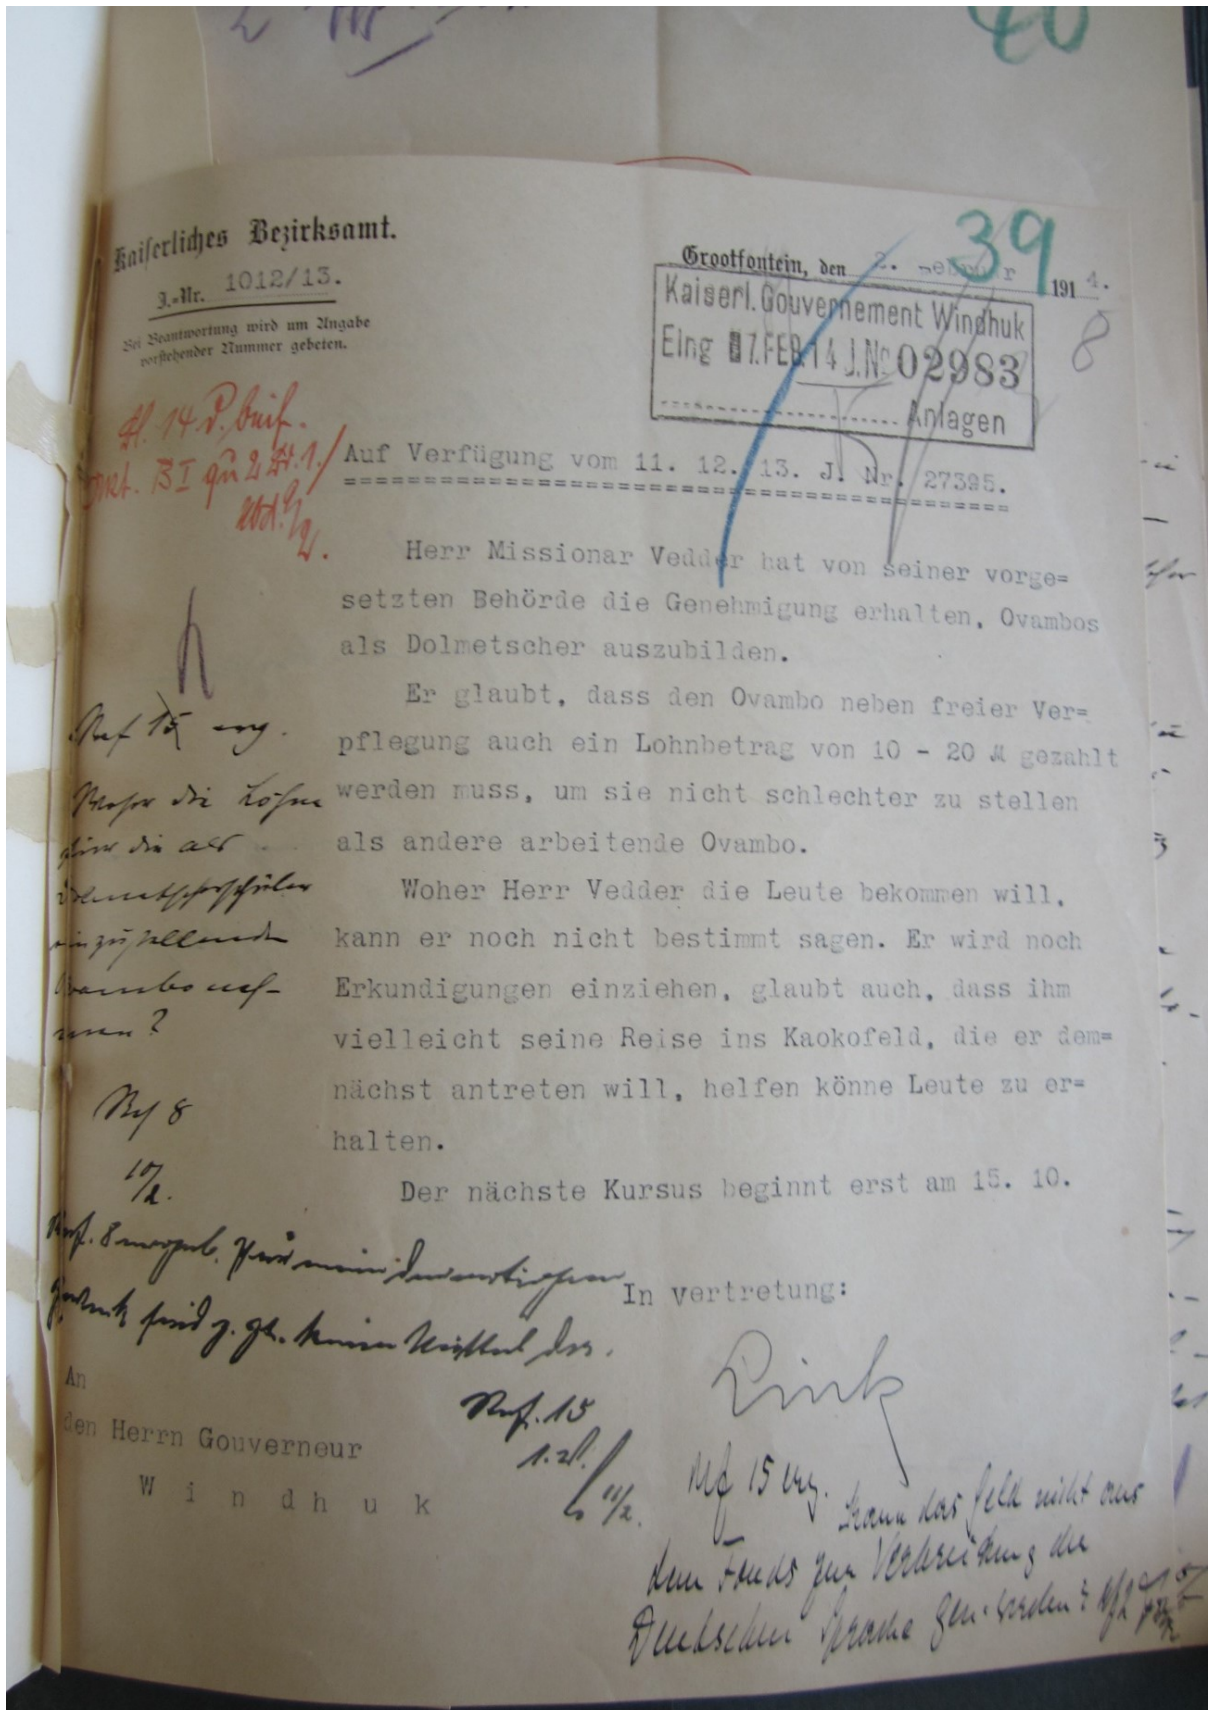 40
39
Kaiserliches Bezirksamt.
J.-Nr. 1012/13.
Bei Beantwortung wird um Angabe
vorstehender Nummer gebeten.
Grootfontein, den 2. Februar 1914.
Kaiserl. Gouvernement Windhuk
Eing 07. FEB. 14 J.No 02983
Anlagen
8
Auf Verfügung vom 11. 12. 13. J. Nr. 27395.
Herr Missionar Vedder hat von seiner vorge=
setzten Behörde die Genehmigung erhalten, Ovambos
als Dolmetscher auszubilden.
Er glaubt, dass den Ovambo neben freier Ver=
pflegung auch ein Lohnbetrag von 10 - 20 M gezahlt
werden muss, um sie nicht schlechter zu stellen
als andere arbeitende Ovambo.
Woher Herr Vedder die Leute bekommen will,
kann er noch nicht bestimmt sagen. Er wird noch
Erkundigungen einziehen, glaubt auch, dass ihm
vielleicht seine Reise ins Kaokofeld, die er dem=
nächst antreten will, helfen könne Leute zu er=
halten.
Der nächste Kursus beginnt erst am 15. 10.
In Vertretung:
An
den Herrn Gouverneur
Windhuk
Ref 15 erg.
Woher die Löhne
für die als
Dolmetscherschüler
einzustellenden
Ovambo neh-
men?
Ref 8
10/2.
Ref. 8
sind z. Zt. keine Mittel da.
Ref. 15
11/2.
Ref 15 erg.
Kann das Geld nicht aus
dem Fonds zur Verbreitung der
Deutschen Sprache gen. werden?